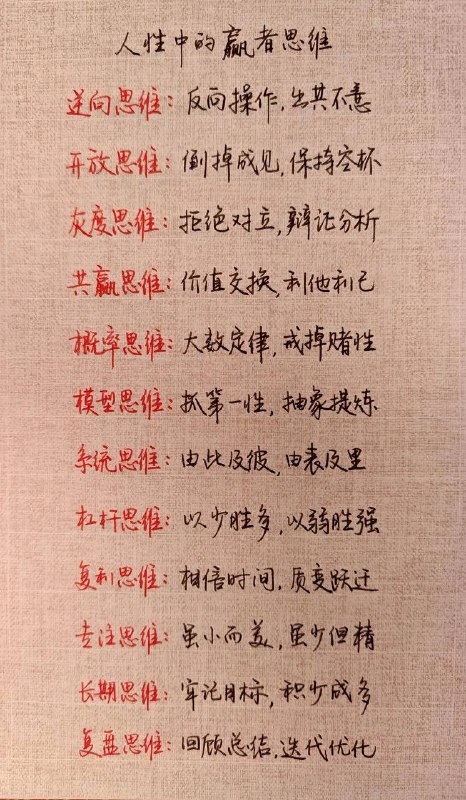 人性中的赢者思维
逆向思维：反向操作，出其不意
开放思维：倒掉成见，保持空杯
灰度思维：拒绝对立，辩证分析
共赢思维：价值交换，利他利己
概率思维：大数定律，戒掉赌性
模型思维：抓第一性，抽象提炼
系统思维：由此及彼，由表及里
杠杆思维：以少胜多，以弱胜强
复利思维：相信时间，质变跃迁
专注思维：虽小而美，虽少但精
长期思维：牢记目标，积少成多
复盘思维：回顾总结，迭代优化